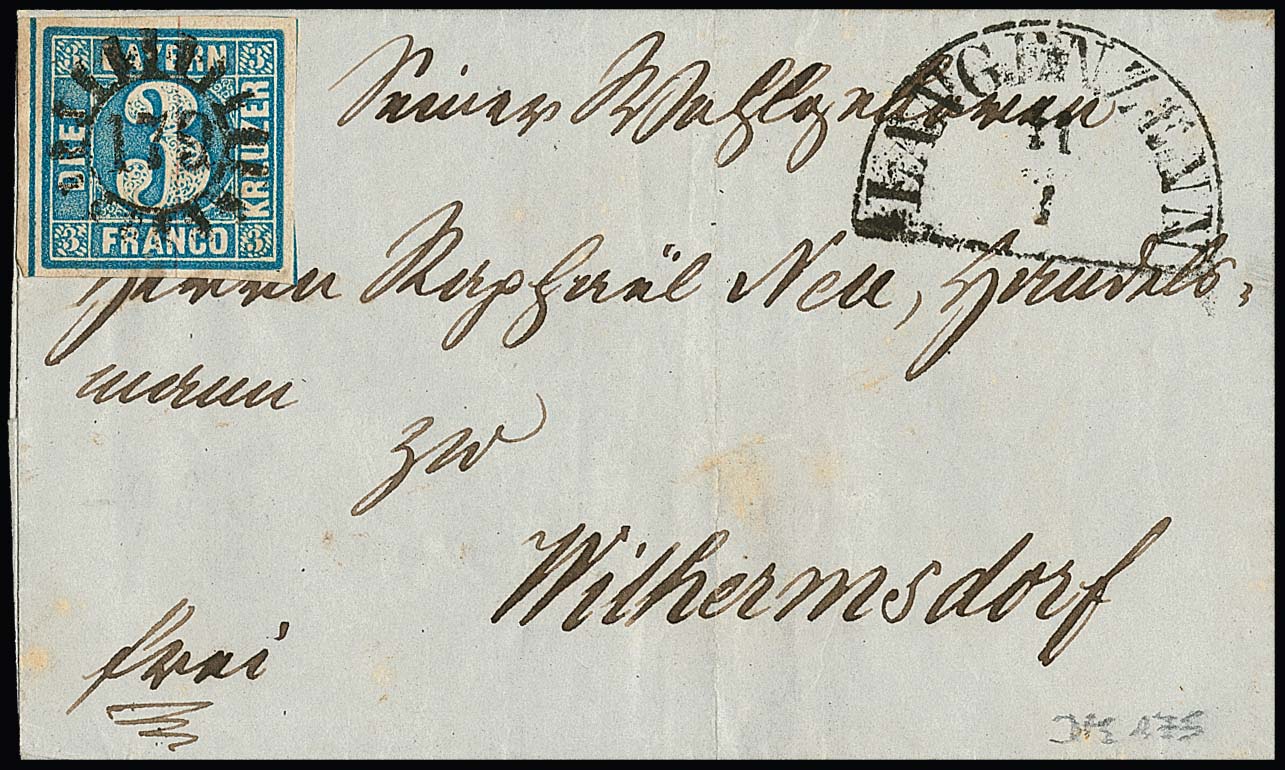 BAYERN
DREI
3
KREUZER
FRANCO
LANGENZENN
11
1
Seiner Wohlgeboren
Herrn Raphaël Neu, Handels-
mann
zu
Wilhermsdorf
frei